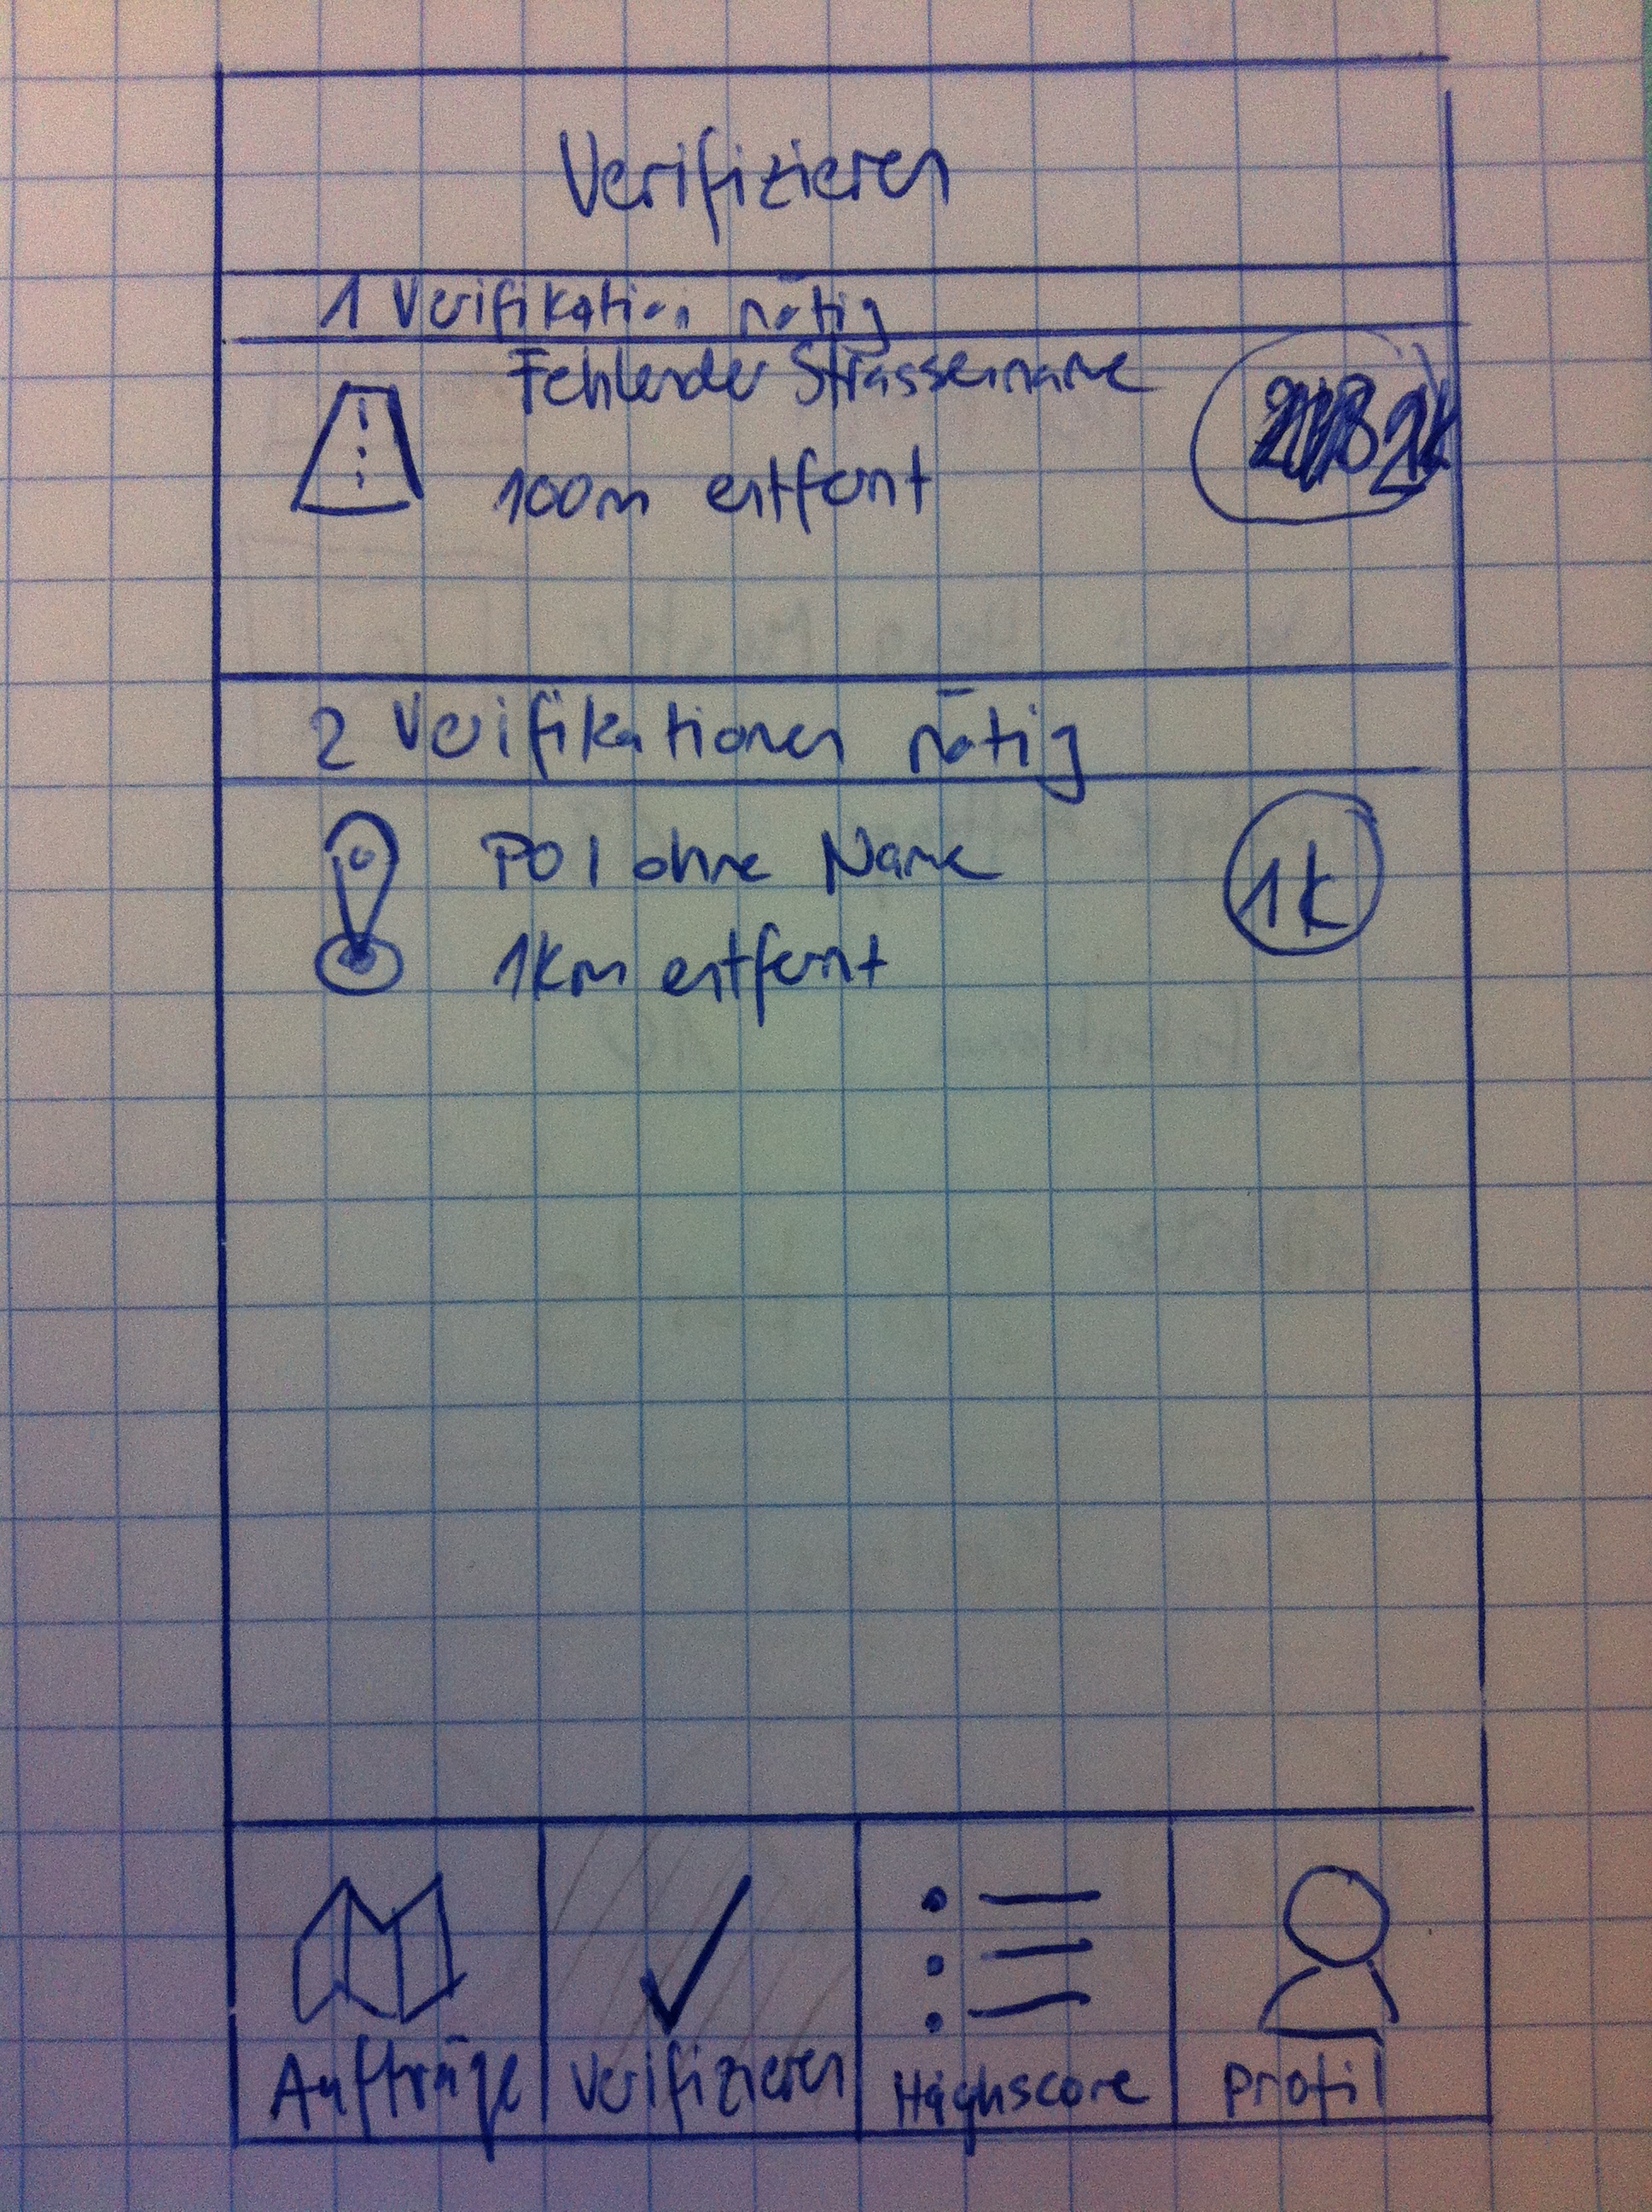 Verifizieren
1 Verifikation nötig
Fehlender Strassenname
100m entfernt
2 Verifikationen nötig
POI ohne Name
1k
1km entfernt
Aufträge
Verifizieren
Highscore
Profil